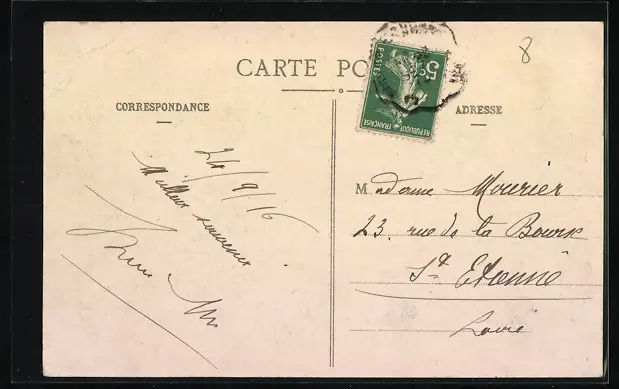 CARTE PO
CORRESPONDANCE
ADRESSE
8
5c
POSTES
REPUBLIQUE FRANÇAISE
24/9/16
Meilleurs souvenirs
Madame Mourier
23. rue de la Bourse
St Etienne
Loire